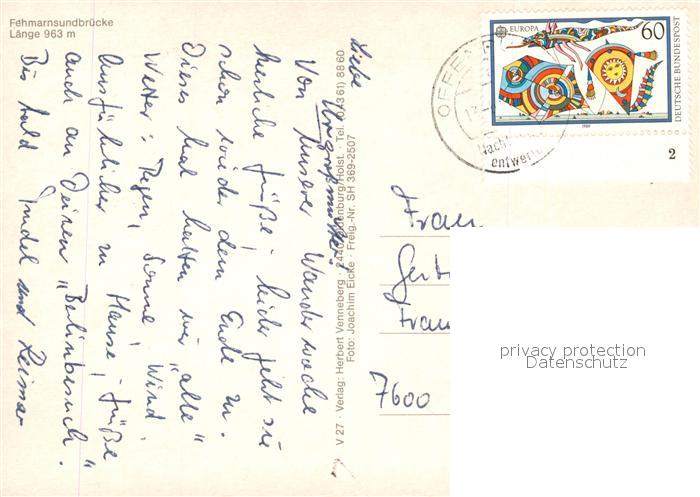 Fehmarnsundbrücke
Länge 963 m
Liebe Urgroßmutter!
Von unserer Wanderwoche
herzliche Grüße; leider geht sie
schon wieder dem Ende zu.
Dieses Mal hatten wir "alle"
Wetter: Regen, Sonne, Wind.
Ausführlicher zu Hause; Grüße
auch an Deinen "Berlinbesuch".
Bis bald und Reimar
V 27 · Verlag: Herbert Venneberg · 2440 Oldenburg/Holst. · Tel. (04361) 8860
Foto: Joachim Eicke · Freig.-Nr. SH 369-2507
EUROPA
60
DEUTSCHE BUNDESPOST
1989
2
OFFEN
Nach
entwerte
Frau
Gert
Frau
7600
privacy protection
Datenschutz